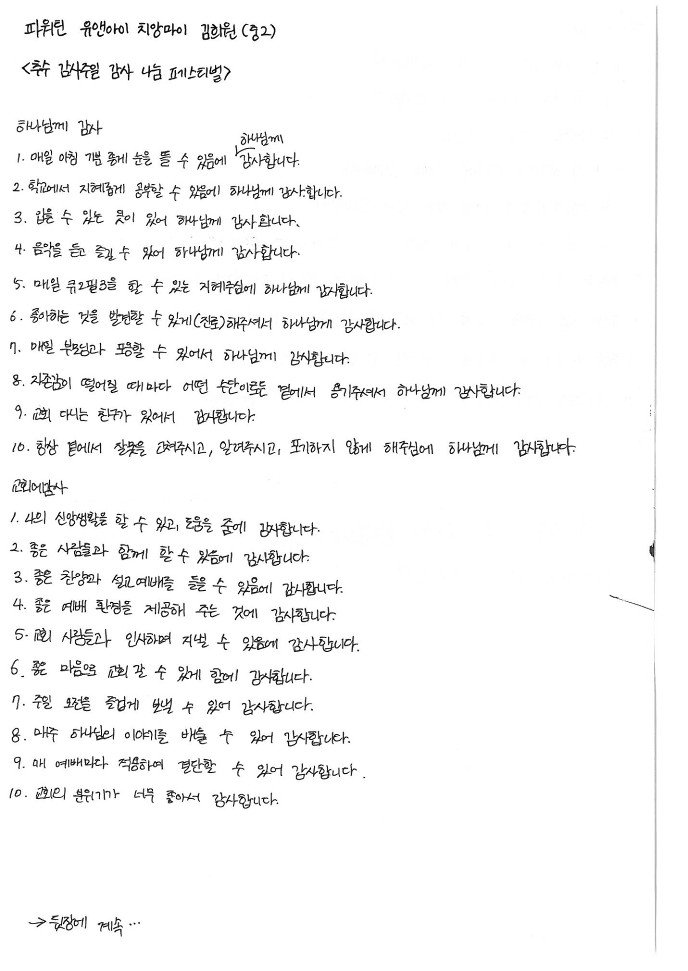 파워틴 유앤아이 치앙마이 김희원(중2)
<추수 감사주일 감사 나눔 페스티벌>
하나님께 감사
1. 매일 아침 기분 좋게 눈을 뜰 수 있음에 하나님께 감사합니다.
2. 학교에서 지혜롭게 공부할 수 있음에 하나님께 감사합니다.
3. 입을 수 있는 옷이 있어 하나님께 감사합니다.
4. 음악을 듣고 즐길 수 있어 하나님께 감사합니다.
5. 매일 큐2필3을 할 수 있는 지혜주심에 하나님께 감사합니다.
6. 좋아하는 것을 발견할 수 있게(진로)해주셔서 하나님께 감사합니다.
7. 매일 부모님과 포옹할 수 있어서 하나님께 감사합니다.
8. 자존감이 떨어질 때마다 어떤 수단이로든 곁에서 용기주셔서 하나님께 감사합니다.
9. 교회 다니는 친구가 있어서 감사합니다.
10. 항상 곁에서 잘못을 고쳐주시고, 알려주시고, 포기하지 않게 해주심에 하나님께 감사합니다.
교회에감사
1. 나의 신앙생활을 할 수 있고, 도움을 줌에 감사합니다.
2. 좋은 사람들과 함께 할 수 있음에 감사합니다.
3. 좋은 찬양과 설교예배를 들을 수 있음에 감사합니다.
4. 좋은 예배 환경을 제공해 주는 것에 감사합니다.
5. 교회 사람들과 인사하며 지낼 수 있음에 감사합니다.
6. 좋은 마음으로 교회 갈 수 있게 함에 감사합니다.
7. 주일 오전을 즐겁게 보낼 수 있어 감사합니다.
8. 매주 하나님의 이야기를 배울 수 있어 감사합니다.
9. 매 예배마다 적용하여 결단할 수 있어 감사합니다.
10. 교회의 분위기가 너무 좋아서 감사합니다.
→ 뒷장에 계속…